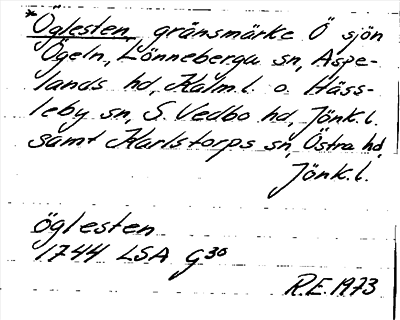 *Öglesten, gränsmärke Ö sjön
Ögeln, Lönneberga sn, Aspe-
lands hd, Kalm.l. o. Häss-
leby sn, S. Vedbo hd, Jönk.l.
samt Karlstorps sn, Östra hd,
Jönk.l.
öglesten
1744 LSA G30
R.E. 1973